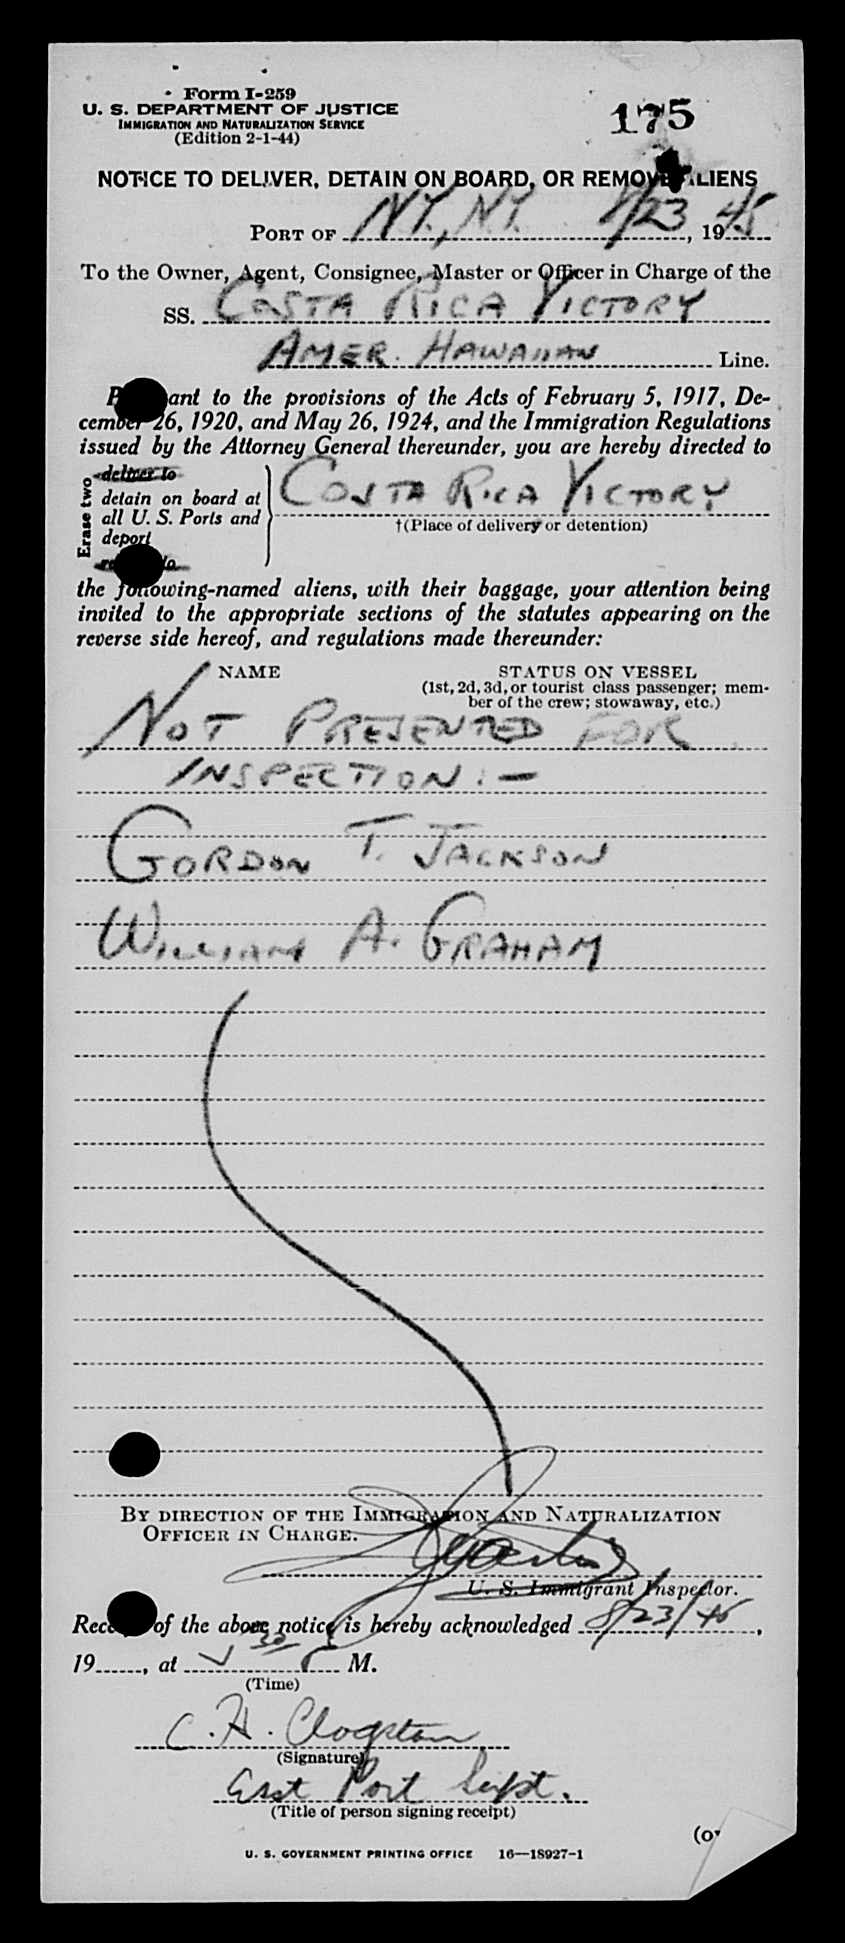 Form I-259
U. S. DEPARTMENT OF JUSTICE
IMMIGRATION AND NATURALIZATION SERVICE
(Edition 2-1-44)
175
NOTICE TO DELIVER, DETAIN ON BOARD, OR REMOVE ALIENS
PORT OF N.Y., N.Y. 8/23, 1945
To the Owner, Agent, Consignee, Master or Officer in Charge of the
SS. COSTA RICA VICTORY
AMER. HAWAIIAN Line.
P ant to the provisions of the Acts of February 5, 1917, De-
cember 26, 1920, and May 26, 1924, and the Immigration Regulations
issued by the Attorney General thereunder, you are hereby directed to
Erase two
deliver to
detain on board at
all U. S. Ports and
deport
COSTA RICA VICTORY
†(Place of delivery or detention)
the following-named aliens, with their baggage, your attention being
invited to the appropriate sections of the statutes appearing on the
reverse side hereof, and regulations made thereunder:
NAME
STATUS ON VESSEL
(1st, 2d, 3d, or tourist class passenger; mem-
ber of the crew; stowaway, etc.)
NOT PRESENTED FOR
INSPECTION:-
GORDON T. JACKSON
WILLIAM A. GRAHAM
BY DIRECTION OF THE IMMIGRATION AND NATURALIZATION
OFFICER IN CHARGE.
U. S. Immigrant Inspector.
Rece of the above notice is hereby acknowledged 8/23/45,
19......, at M.
(Time)
C. H. Clogston
(Signature)
Asst Port Supt.
(Title of person signing receipt)
(ov
U. S. GOVERNMENT PRINTING OFFICE 16—18927-1